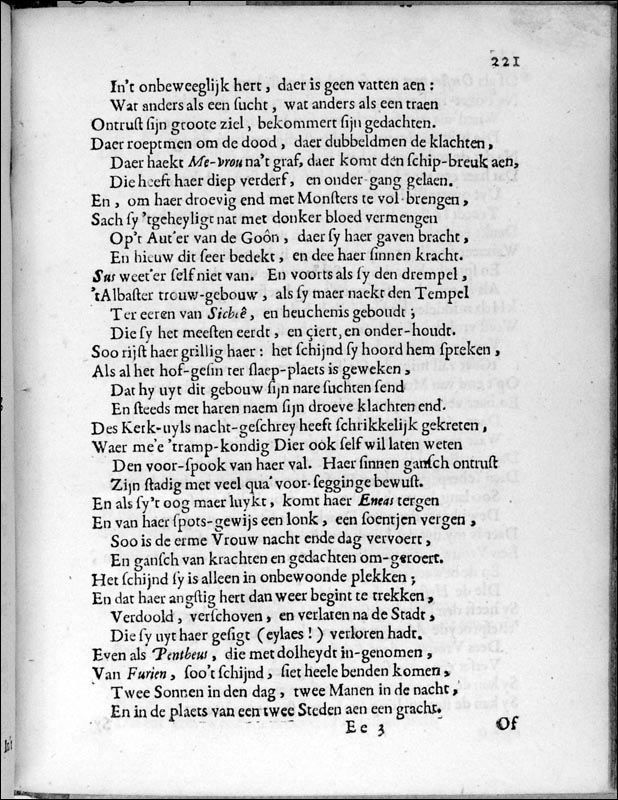 221
In't onbeweeglijk hert, daer is geen vatten aen:
Wat anders als een ſucht, wat anders als een traen
Ontruſt ſijn groote ziel, bekommert ſijn gedachten.
Daer roeptmen om de dood, daer dubbeldmen de klachten,
Daer haekt Me-vrou na't graf, daer komt den ſchip-breuk aen,
Die heeft haer diep verderf, en onder-gang gelaen.
En, om haer droevig end met Monſters te vol-brengen,
Sach ſy 'tgeheyligt nat met donker bloed vermengen
Op't Aut'er van de Goôn, daer ſy haer gaven bracht,
En hieuw dit ſeer bedekt, en dee haer ſinnen kracht.
Sus weet'er ſelf niet van. En voorts als ſy den drempel,
'tAlbaſter trouw-gebouw, als ſy maer naekt den Tempel
Ter eeren van Sichê, en heuchenis geboudt;
Die ſy het meeſten eerdt, en çiert, en onder-houdt.
Soo rijſt haer grillig haer: het ſchijnd ſy hoord hem ſpreken,
Als al het hof-geſin ter ſlaep-plaets is geweken,
Dat hy uyt dit gebouw ſijn nare ſuchten ſend
En ſteeds met haren naem ſijn droeve klachten end.
Des Kerk-uyls nacht-geſchrey heeft ſchrikkelijk gekreten,
Waer me'e 'tramp-kondig Dier ook ſelf wil laten weten
Den voor-ſpook van haer val. Haer ſinnen ganſch ontruſt
Zijn ſtadig met veel qua' voor-ſegginge bewuſt.
En als ſy't oog maer luykt, komt haer Eneas tergen
En van haer ſpots-gewijs een lonk, een ſoentjen vergen,
Soo is de erme Vrouw nacht ende dag vervoert,
En ganſch van krachten en gedachten om-geroert.
Het ſchijnd ſy is alleen in onbewoonde plekken;
En dat haer angſtig hert dan weer begint te trekken,
Verdoold, verſchoven, en verlaten na de Stadt,
Die ſy uyt haer geſigt (eylaes!) verloren hadt.
Even als Pentheus, die met dolheydt in-genomen,
Van Furien, ſoo't ſchijnd, ſiet heele benden komen,
Twee Sonnen in den dag, twee Manen in de nacht,
En in de plaets van een twee Steden aen een gracht.
Ee 3
Of